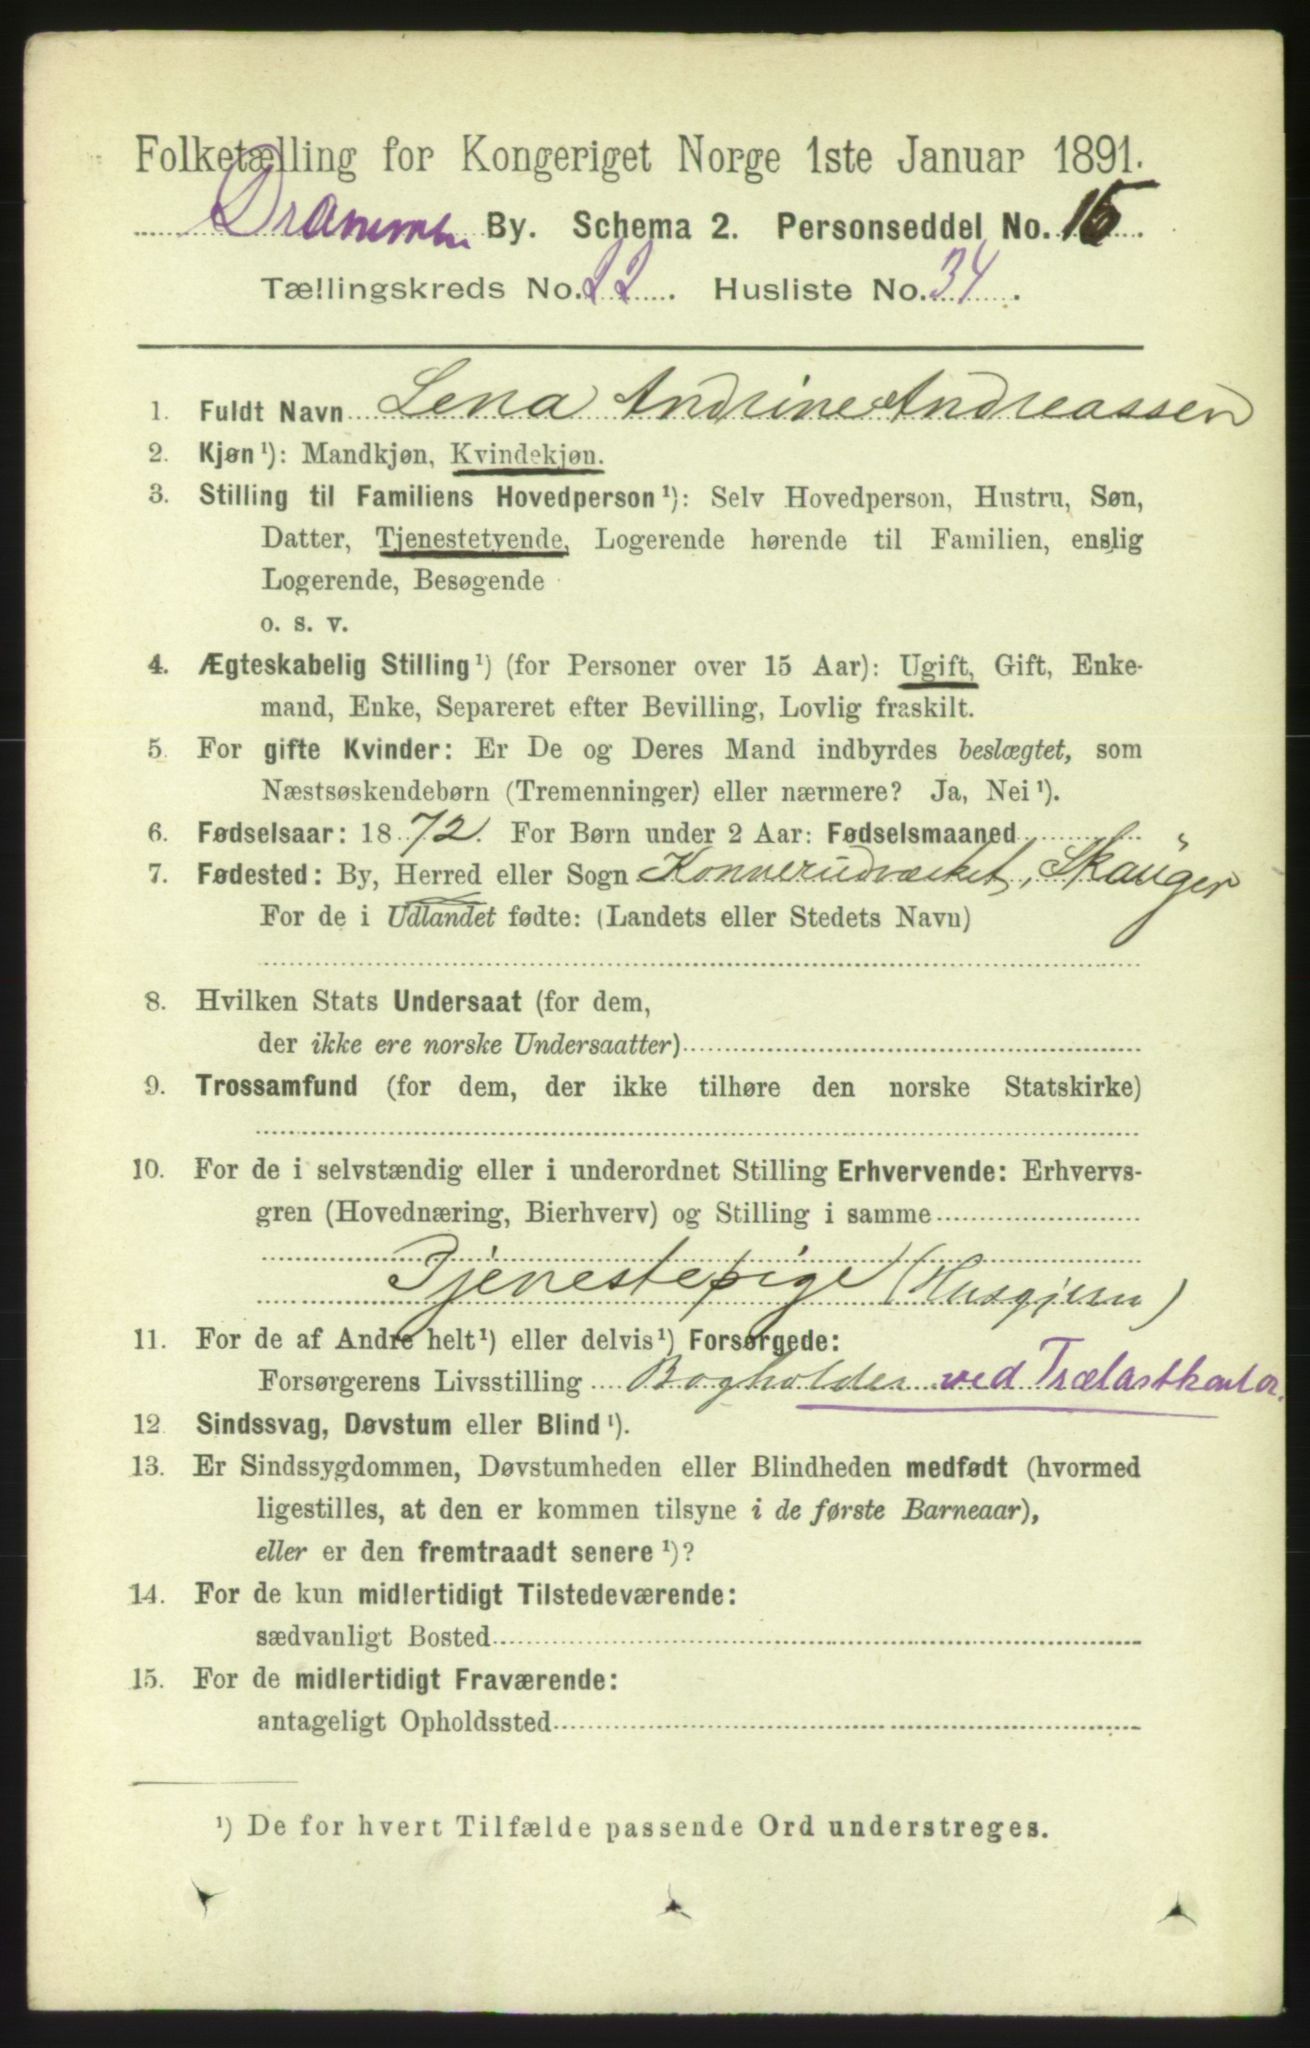 Folketælling for Kongeriget Norge 1ste Januar 1891.
Drammen By. Schema 2. Personseddel No. 15
Tællingskreds No. 22. Husliste No. 34.
1. Fuldt Navn Lena Andrine Andreassen
2. Kjøn¹): Mandkjøn, Kvindekjøn.
3. Stilling til Familiens Hovedperson¹): Selv Hovedperson, Hustru, Søn,
Datter, Tjenestetyende, Logerende hørende til Familien, enslig
Logerende, Besøgende
o. s. v.
4. Ægteskabelig Stilling¹) (for Personer over 15 Aar): Ugift, Gift, Enke-
mand, Enke, Separeret efter Bevilling, Lovlig fraskilt.
5. For gifte Kvinder: Er De og Deres Mand indbyrdes beslægtet, som
Næstsøskendebørn (Tremenninger) eller nærmere? Ja, Nei¹).
6. Fødselsaar: 1872. For Børn under 2 Aar: Fødselsmaaned
7. Fødested: By, Herred eller Sogn Konnerudværket, Skauger
For de i Udlandet fødte: (Landets eller Stedets Navn)
8. Hvilken Stats Undersaat (for dem,
der ikke ere norske Undersaatter)
9. Trossamfund (for dem, der ikke tilhøre den norske Statskirke)
10. For de i selvstændig eller i underordnet Stilling Erhvervende: Erhvervs-
gren (Hovednæring, Bierhverv) og Stilling i samme
Tjenestepige (Husgjern)
11. For de af Andre helt¹) eller delvis¹) Forsørgede:
Forsørgerens Livsstilling Bogholder ved Trælastkontor.
12. Sindssvag, Døvstum eller Blind¹).
13. Er Sindssygdommen, Døvstumheden eller Blindheden medfødt (hvormed
ligestilles, at den er kommen tilsyne i de første Barneaar),
eller er den fremtraadt senere¹)?
14. For de kun midlertidigt Tilstedeværende:
sædvanligt Bosted
15. For de midlertidigt Fraværende:
antageligt Opholdssted
¹) De for hvert Tilfælde passende Ord understreges.